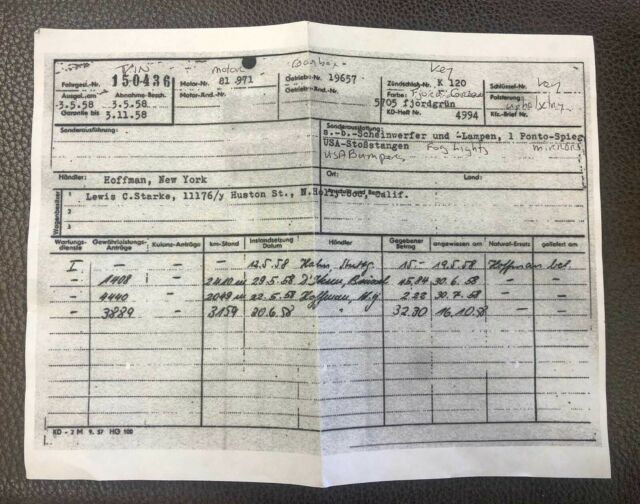 VIN motor Gearbox Key
Fahrgest.-Nr. 150436 Motor-Nr. 81 971 Getriebe-Nr. 19657 Zündschloß-Nr. K 120 Schlüssel-Nr. Key
Ausgel. am Abnahme-Besch. Motor-Änd.-Nr. Getriebe-Änd.-Nr. Farbe: Fjord Green Polsterung:
3.5.58 3.5.58 5705 fjördgrün upholstery
Garantie bis 3.11.58 KD-Heft Nr. 4994 Kfz.-Brief Nr.
Sonderausführung: Sonderausstattung:
s.-b.-Scheinwerfer und -Lampen, 1 Ponto-Spieg
USA-Stoßstangen Fog Lights mirrors
USA Bumpers
Händler: Hoffman, New York Ort: Land:
Wagenbesitzer
1 Lewis C.Starke, 11176/y Huston St., N.Hollywood, Calif.
2
3
Wartungs-dienste Gewährleistungs-Anträge Kulanz-Anträge km-Stand Instandsetzung Datum Händler Gegebener Betrag angewiesen am Natural-Ersatz geliefert am
I. — — — 12.5.58 Hahn, Stuttg. 15.- 19.5.58 Hoffman bel.
- 1408 - 2410 m 29.5.58 45,84 30.6.58 - -
- 4440 - 2049 m 22.5.58 Hoffman, N.Y. 2.28 30.7.58 - -
- 3889 - 3159 20.6.58 " 32.30 16.10.58 - -
KD - 2 M 9. 57 HG 100